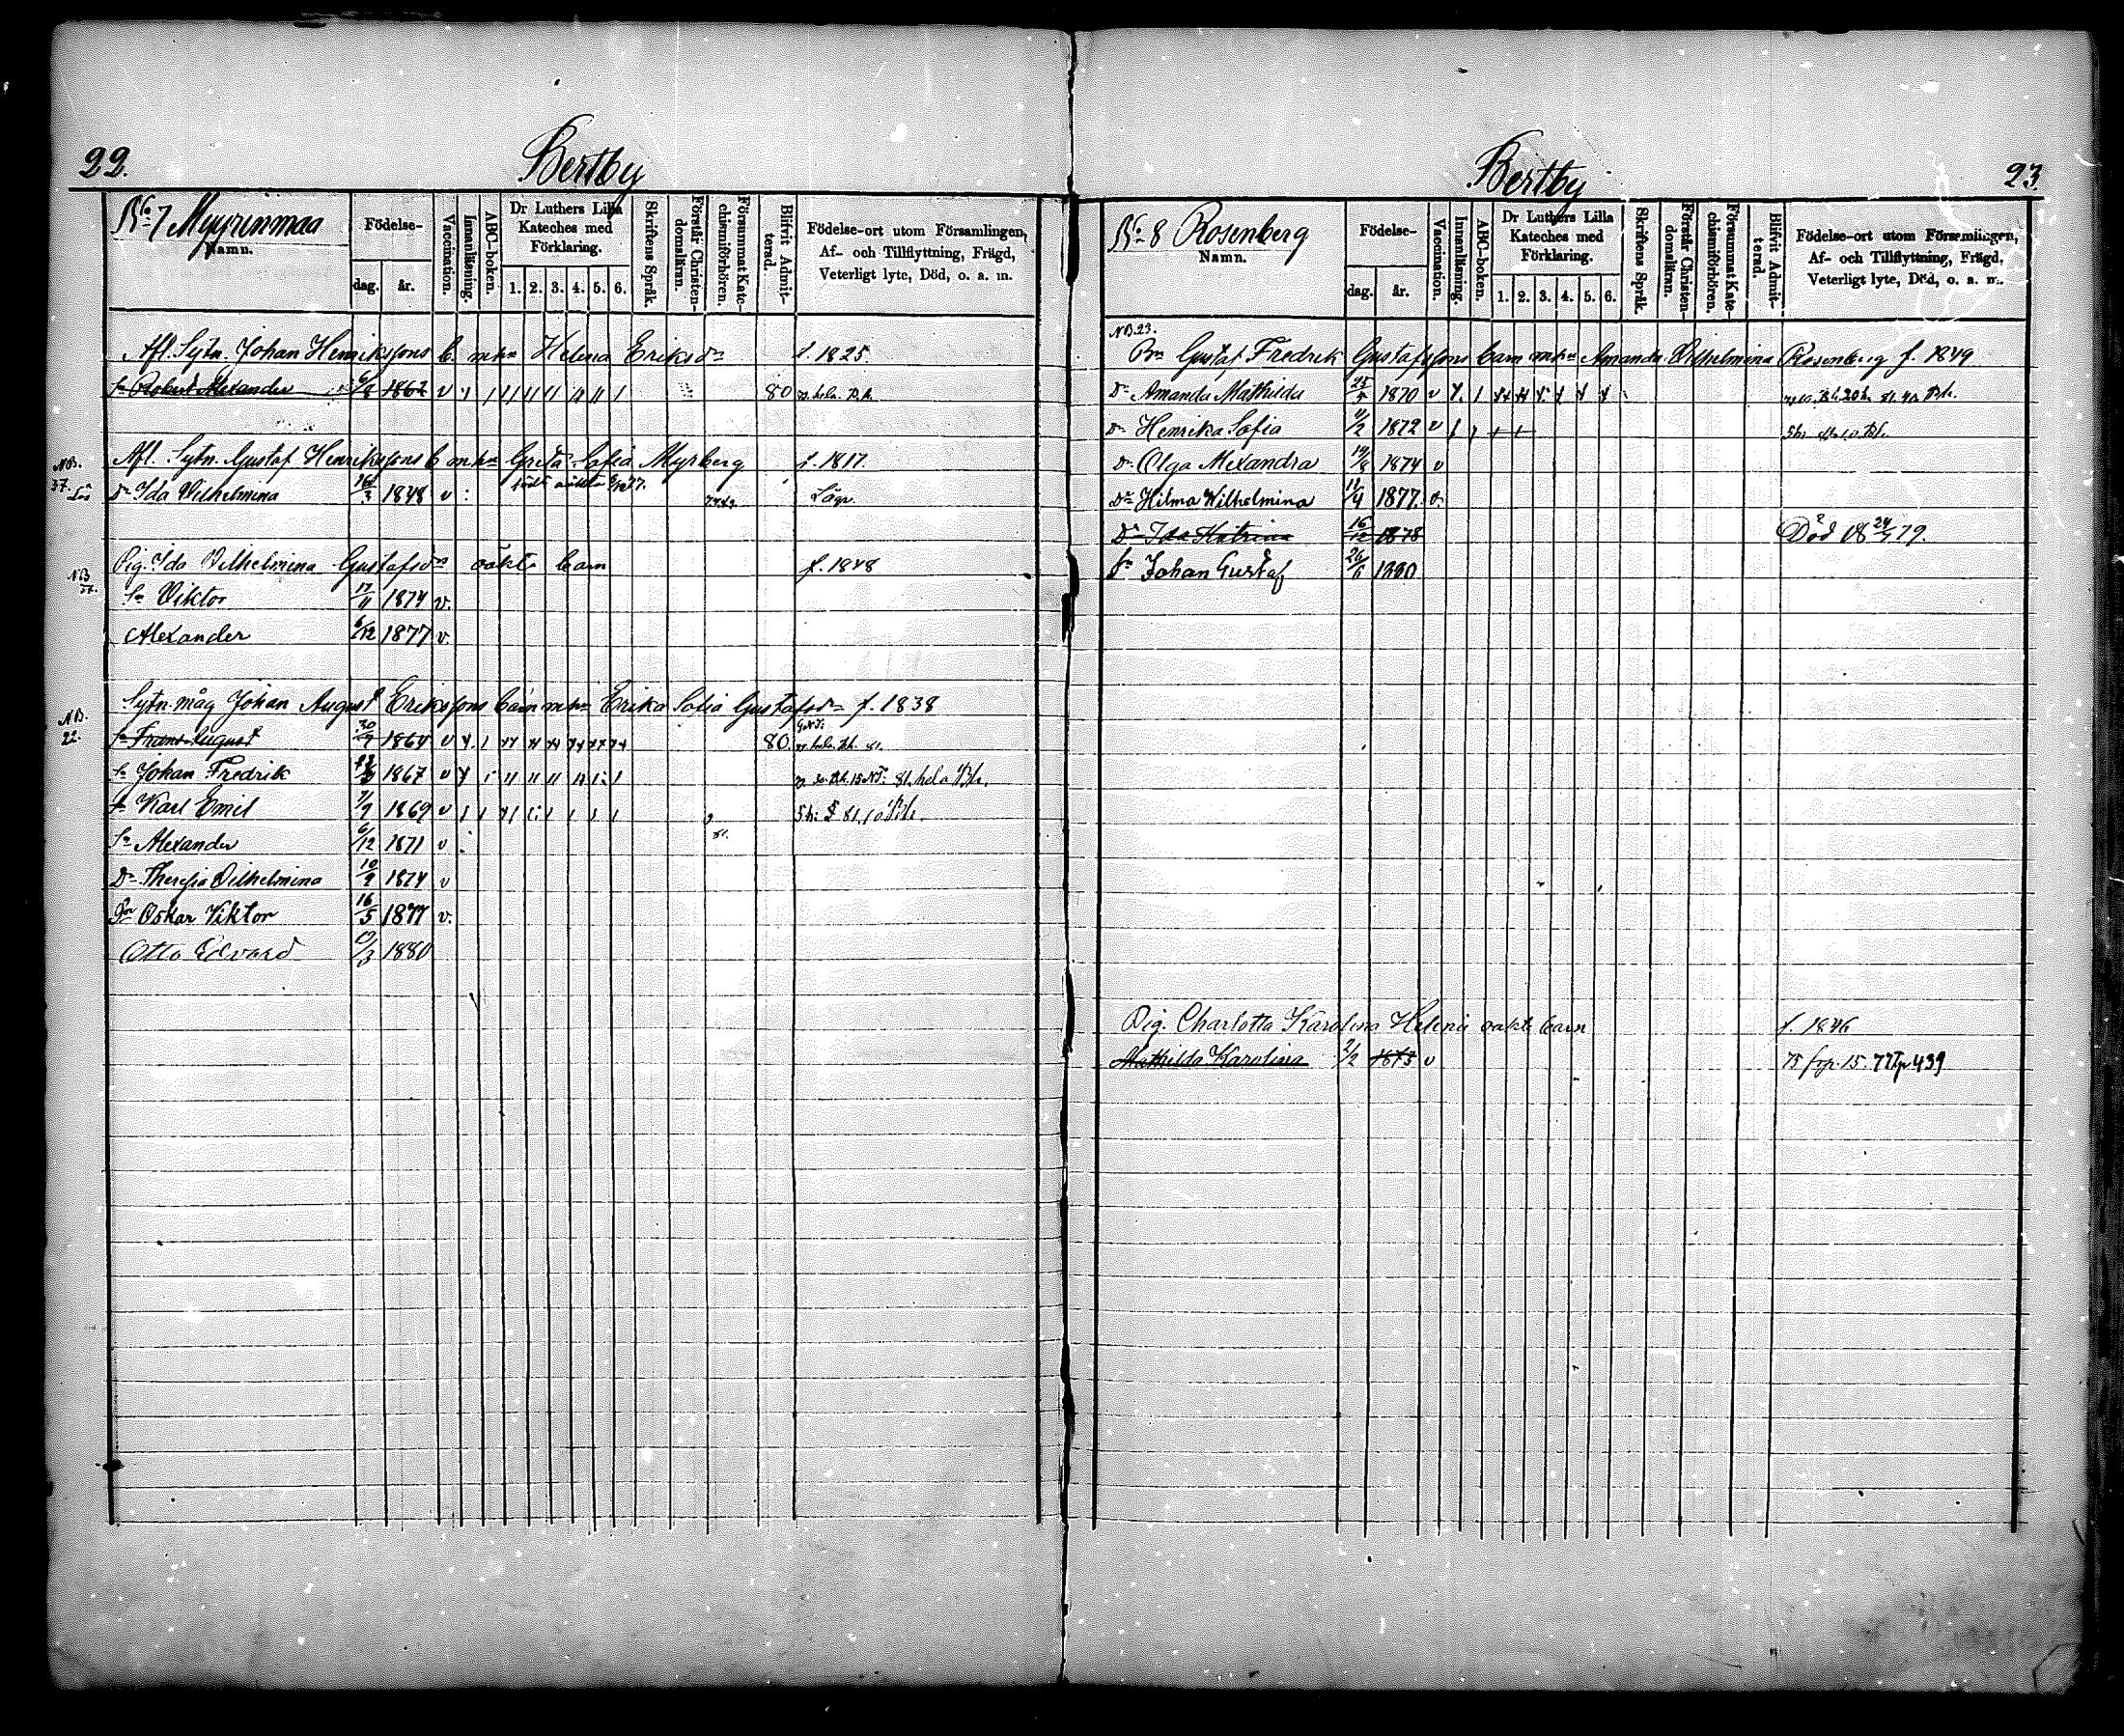 22.
Bertby
No 7 Myyrinmaa
Namn.
Födelse-
dag.
år.
Vaccination.
Innanläsning.
ABC-boken.
Dr Luthers Lilla
Kateches med
Förklaring.
1. 2. 3. 4. 5. 6.
Skriftens Språk.
Förstår Christen-
domsläran.
Försummat Kate-
chismiförhören.
Blifvit Admit-
terad.
Födelse-ort utom Församlingen,
Af- och Tillflyttning, Frägd,
Veterligt lyte, Död, o. a. m.
Afl. Sytn. Johan Henrikssons b. m. h:u Helena Eriksd:r f. 1825.
Sn Robert Alexander 1862 v 80
Afl. Sytn. Gustaf Henrikssons b m h:u Greta Sofia Myrberg f. 1817.
NB.
37.
Dr Ida Vilhelmina 16/3 1848 v
Pig. Ida Vilhelmina Gustafsd:r oäkta barn f. 1848
NB
37.
Sn Viktor 17/11 1874 v.
Alexander 6/12 1877 v.
Sytn. måg Johan August Erikssons barn m h:u Erika Sofia Gustafsd:r f. 1838
NB.
22.
Sn Frans August 30/9 1864 v 80.
Sn Johan Fredrik 1867 v 81. hela Bk.
Sn Karl Emil 7/9 1869 v
Sn Alexander 6/12 1871 v
Dr Theresia Vilhelmina 10/9 1874 v
Sn Oskar Viktor 16/5 1877 v.
Otto Edvard 1880
23.
Bertby
No 8 Rosenberg
Namn.
Födelse-
dag.
år.
Vaccination.
Innanläsning.
ABC-boken.
Dr Luthers Lilla
Kateches med
Förklaring.
1. 2. 3. 4. 5. 6.
Skriftens Språk.
Förstår Christen-
domsläran.
Försummat Kate-
chismiförhören.
Blifvit Admit-
terad.
Födelse-ort utom Församlingen,
Af- och Tillflyttning, Frägd,
Veterligt lyte, Död, o. a. m.
NB. 23.
Bn Gustaf Fredrik Gustafssons barn m h:u Amanda Vilhelmina Rosenberg f. 1849
Dr Amanda Mathilda 1870 v
Dr Henrika Sofia 1872 v
Dr Olga Alexandra 19/8 1874 v
Dr Hilma Wilhelmina 11/4 1877. v.
Dr Ida Katrina 16/12 1878 Död 18 79.
Sn Johan Gustaf 26/6 1880.
Pig. Charlotta Karolina Helenii oäkt. barn f. 1846
Mathilda Karolina 2/2 1873 v 75 15. 77 439